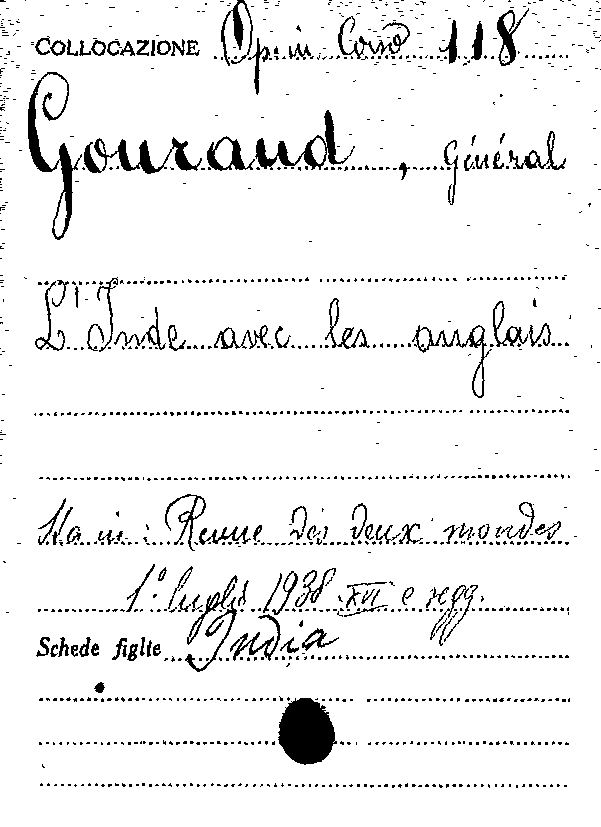 COLLOCAZIONE Op. in Corso 118
Gouraud, Général
L'Inde avec les anglais
Sta in: Revue des deux mondes
1.º luglio 1938 XVI e segg.
Schede figlie India